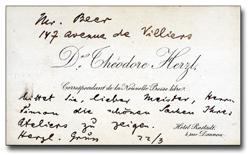 Mr. Beer
147 avenue de Villiers
Dr. Théodore Herzl.
Correspondant de la "Nouvelle Presse libre".
Bittet Sie, lieber Meister, Herrn
die schönen Sachen Ihres
Ateliers zu zeigen.
Herzl. Gruß 22/3
Hôtel Rastadt.
4, rue Daunou.